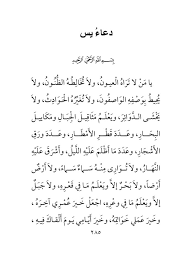 دعاءُ يس
بِسْمِ اللهِ الرَّحْمَنِ الرَّحِيمِ
يَا مَنْ لَا تَرَاهُ الْعُيُونُ، وَلاَ تُخَالِطُهُ الظُّنُونُ، وَلاَ
يُحِيطُ بِوَصْفِهِ الْوَاصِفُونَ، وَلاَ تُغَيِّرُهُ الْحَوَادِثُ، وَلاَ
يَخْشَى الدَّوَائِرَ، وَيَعْلَمُ مَثَاقِيلَ الْجِبَالِ وَمَكَايِيلَ
الْبِحَارِ، وَعَدَدَ قَطْرِ الْأَمْطَارِ، وَعَدَدَ وَرَقِ
الْأَشْجَارِ، وَعَدَدَ مَا أَظْلَمَ عَلَيْهِ اللَّيْلُ، وَأَشْرَقَ عَلَيْهِ
النَّهَارُ، وَلاَ تُوَارِي مِنْهُ سَمَاءٌ سَمَاءً، وَلاَ أَرْضٌ
أَرْضًا، وَلاَ بَحْرٌ إِلاَّ وَيَعْلَمُ مَا فِي قَعْرِهِ، وَلاَ جَبَلٌ
إِلاَّ وَيَعْلَمُ مَا فِي وَعْرِهِ، اِجْعَلْ خَيْرَ عُمْرِي آخِرَهُ،
وَخَيْرَ عَمَلِي خَوَاتِمَهُ، وَخَيْرَ أَيَّامِي يَوْمَ أَلْقَاكَ فِيهِ،
٢٨٥